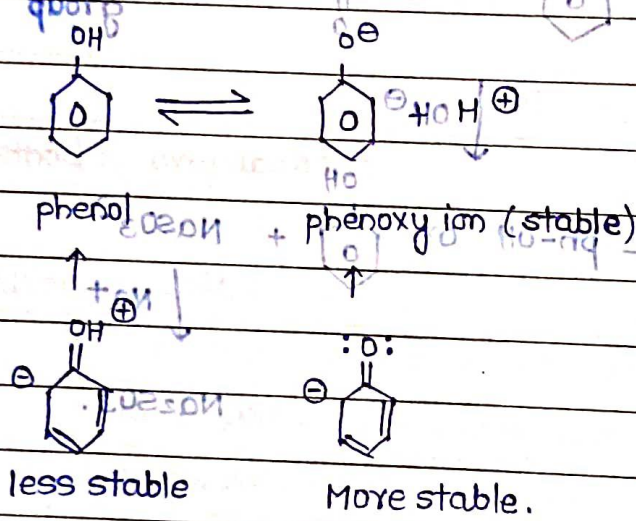 OH O⊖
O ⇌ O H⊕
phenol + phenoxy ion (stable)
OH⊕ :O:
⊖ ⊖
less stable More stable.